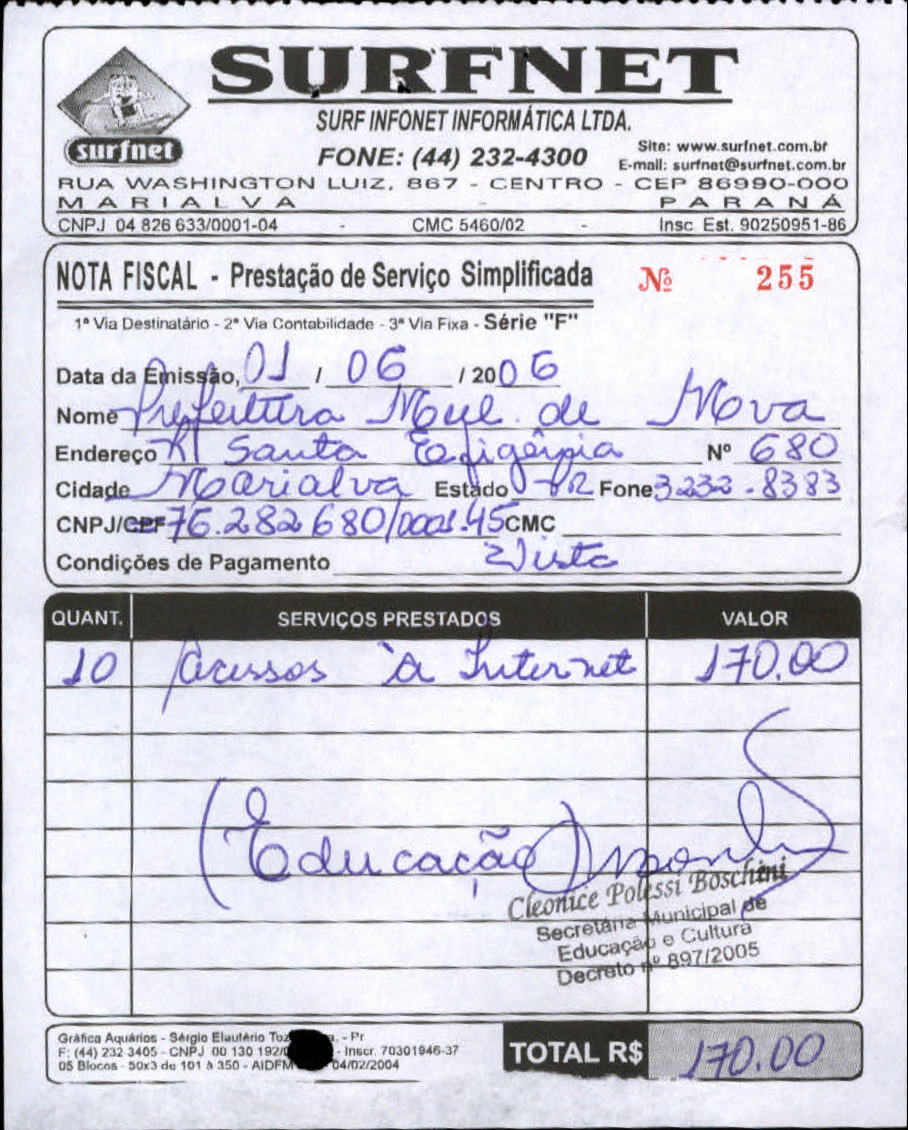 SURFNET
surfnet
SURF INFONET INFORMÁTICA LTDA.
FONE: (44) 232-4300
Site: www.surfnet.com.br
E-mail: surfnet@surfnet.com.br
RUA WASHINGTON LUIZ, 867 - CENTRO - CEP 86990-000
MARIALVA PARANÁ
CNPJ 04 826 633/0001-04 - CMC 5460/02 - Insc. Est. 90250951-86
NOTA FISCAL - Prestação de Serviço Simplificada Nº 255
1ª Via Destinatário - 2ª Via Contabilidade - 3ª Via Fixa - Série "F"
Data da Emissão, 01 / 06 / 2006
Nome Prefeitura Mul. de Mova
Endereço R Santa Efigênia Nº 680
Cidade Marialva Estado PR Fone 3232-8383
CNPJ/CPF 76.282 680/0001.45 CMC
Condições de Pagamento Vista
QUANT. SERVIÇOS PRESTADOS VALOR
10 Acessos à Internet 170.00
(Educação)
Cleonice Polessi Boschini
Secretária Municipal de
Educação e Cultura
Decreto nº 897/2005
Gráfica Aquários - Sérgio Elautério - Pr
F: (44) 232 3405 - CNPJ 00 130 192/0 - Inscr. 70301946-37
05 Blocos - 50x3 de 101 à 350 - AIDFM 04/02/2004
TOTAL R$ 170.00